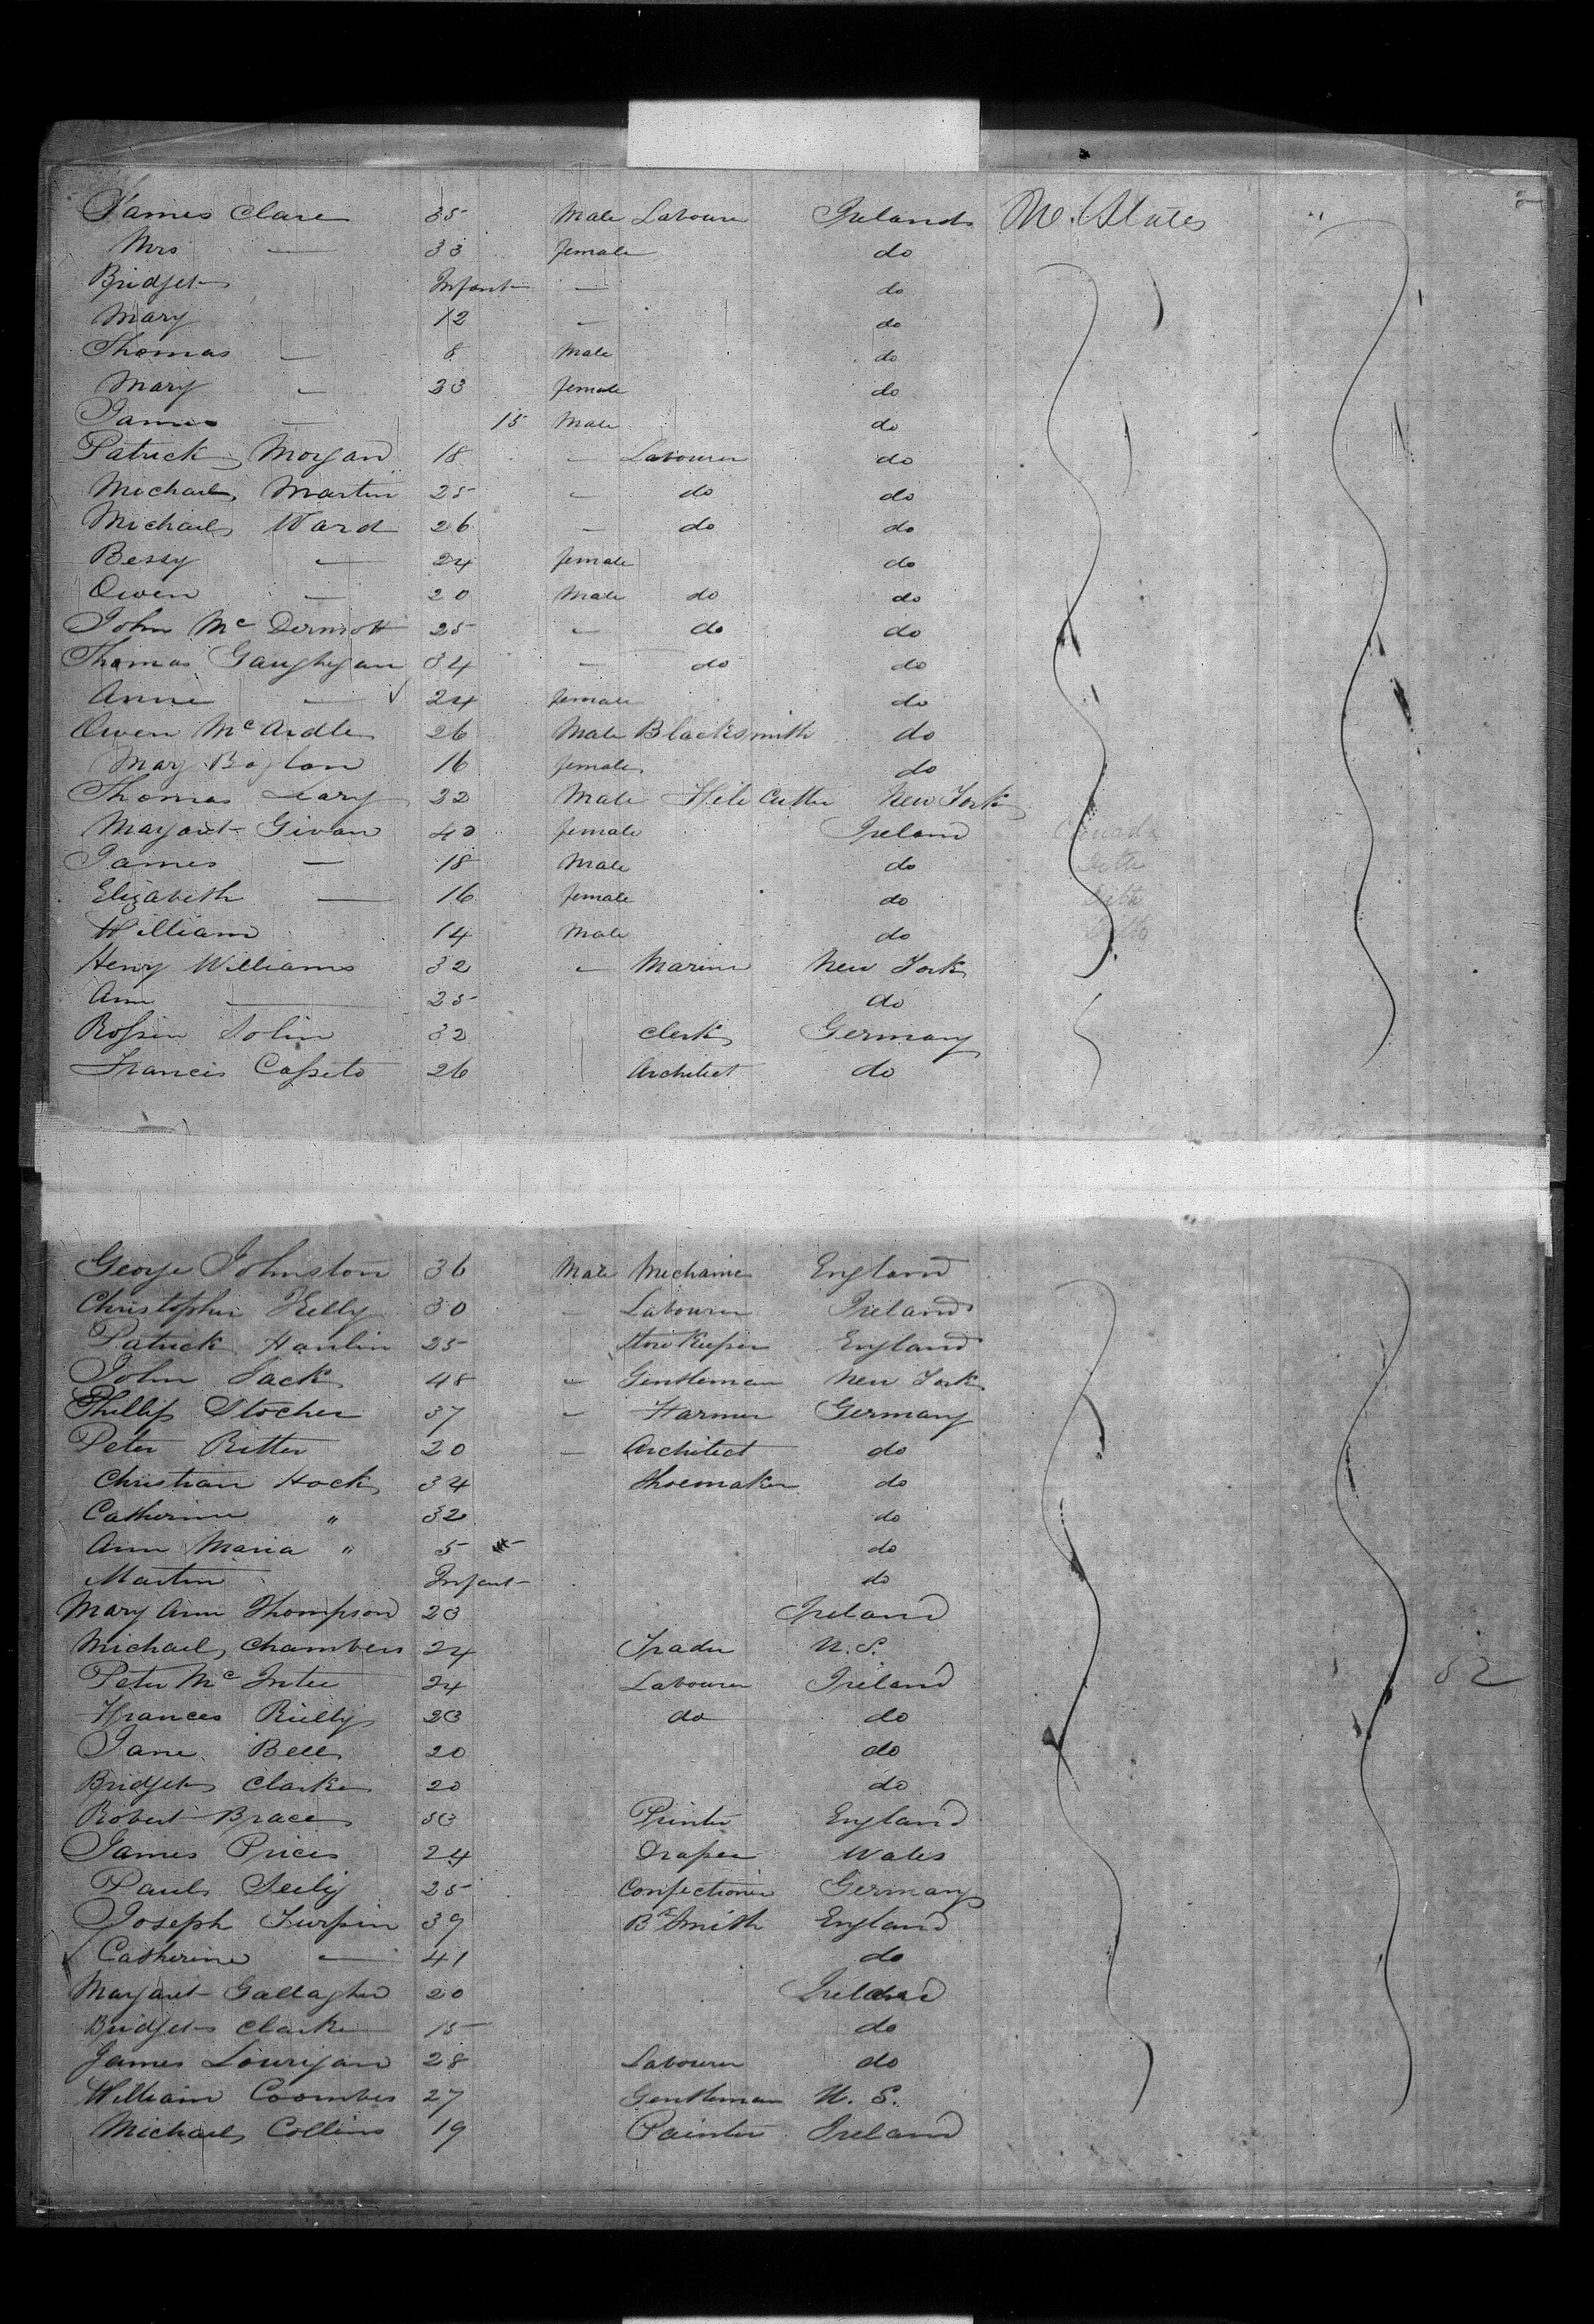 James Clare 35 Male Labourer Ireland U. States "
Mrs — 33 female do
Bridget Infant — do
Mary 12 — do
Thomas — 8 Male do
Mary — 23 female do
James — 15 Male do
Patrick Morgan 18 — Labourer do
Michael Martin 25 - do do
Michael Ward 26 — do do
Bessy — 24 female do
Owen — 20 Male do do
John Mc Dermott 25 — do do
Thomas Gaughgan 34 — do do
Anne — √ 24 female do
Owen McArdle 26 Male Blacksmith do
Mary Boylan 16 female do
Thomas Lary 22 Male File Cutter New York
Margaret Givan 40 female Ireland Canada
James — 18 Male do Ditto
Elizabeth — 16 female do Ditto
William 14 Male do Ditto
Henry Williams 32 - Marine New York
Ann — 25 do
32 Clerk Germany
Francis 26 Architect do
George Johnston 36 Male Mechanic England
Christopher Kelly 30 - Labourer Ireland
Patrick Hanlin 25 Store Keeper England
John Jack 48 - Gentleman New York
Phillip Stocher 37 - Farmer Germany
Peter Ritter 20 — Architect do
Christian Hock 34 Shoemaker do
Catherine " 32 do
Ann Maria " 5 do
Martin Infant do
Mary Ann Thompson 23 Ireland
Michael Chambers 24 Trader U.S.
Peter Mc Intee 24 Labourer Ireland 52
Frances Rielly 23 do do
Jane Bell 20 do
Bridget Clarke 20 do
Robert Brace 33 Printer England
James Price 24 Draper Wales
Paul Seily 25 Confectioner Germany
Joseph Turpin 39 Bk Smith England
Catherine — 41 do
Margaret Gallagher 20 Ireland
Bridget Clarke 15 do
James Lourigan 28 Labourer do
William Coombes 27 Gentleman U. S.
Michael Collins 19 Painter Ireland